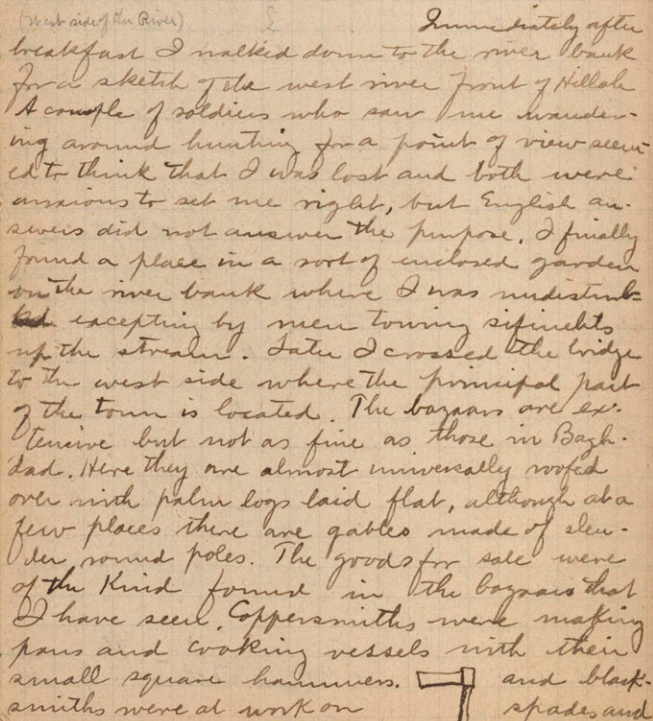 (West side of the River)
Immediately after
breakfast I walked down to the river bank
for a sketch of the west river front of Hillah
A couple of soldiers who saw me wander-
ing around hunting for a point of view seem-
ed to think that I was lost and both were
anxious to set me right, but English an-
swers did not answer the purpose. I finally
found a place in a sort of enclosed garden
on the river bank where I was undisturb-
ed excepting by men towing
up the stream. Later I crossed the bridge
to the west side where the principal part
of the town is located. The bazaars are ex-
tensive but not as fine as those in Bagh-
dad. Here they are almost universally roofed
over with palm logs laid flat, although at a
few places there are gables made of slen-
der round poles. The goods for sale were
of the Kind found in the bazaars that
I have seen. Coppersmiths were making
pans and cooking vessels with their
small square hammers. and black-
smiths were at work on spades and